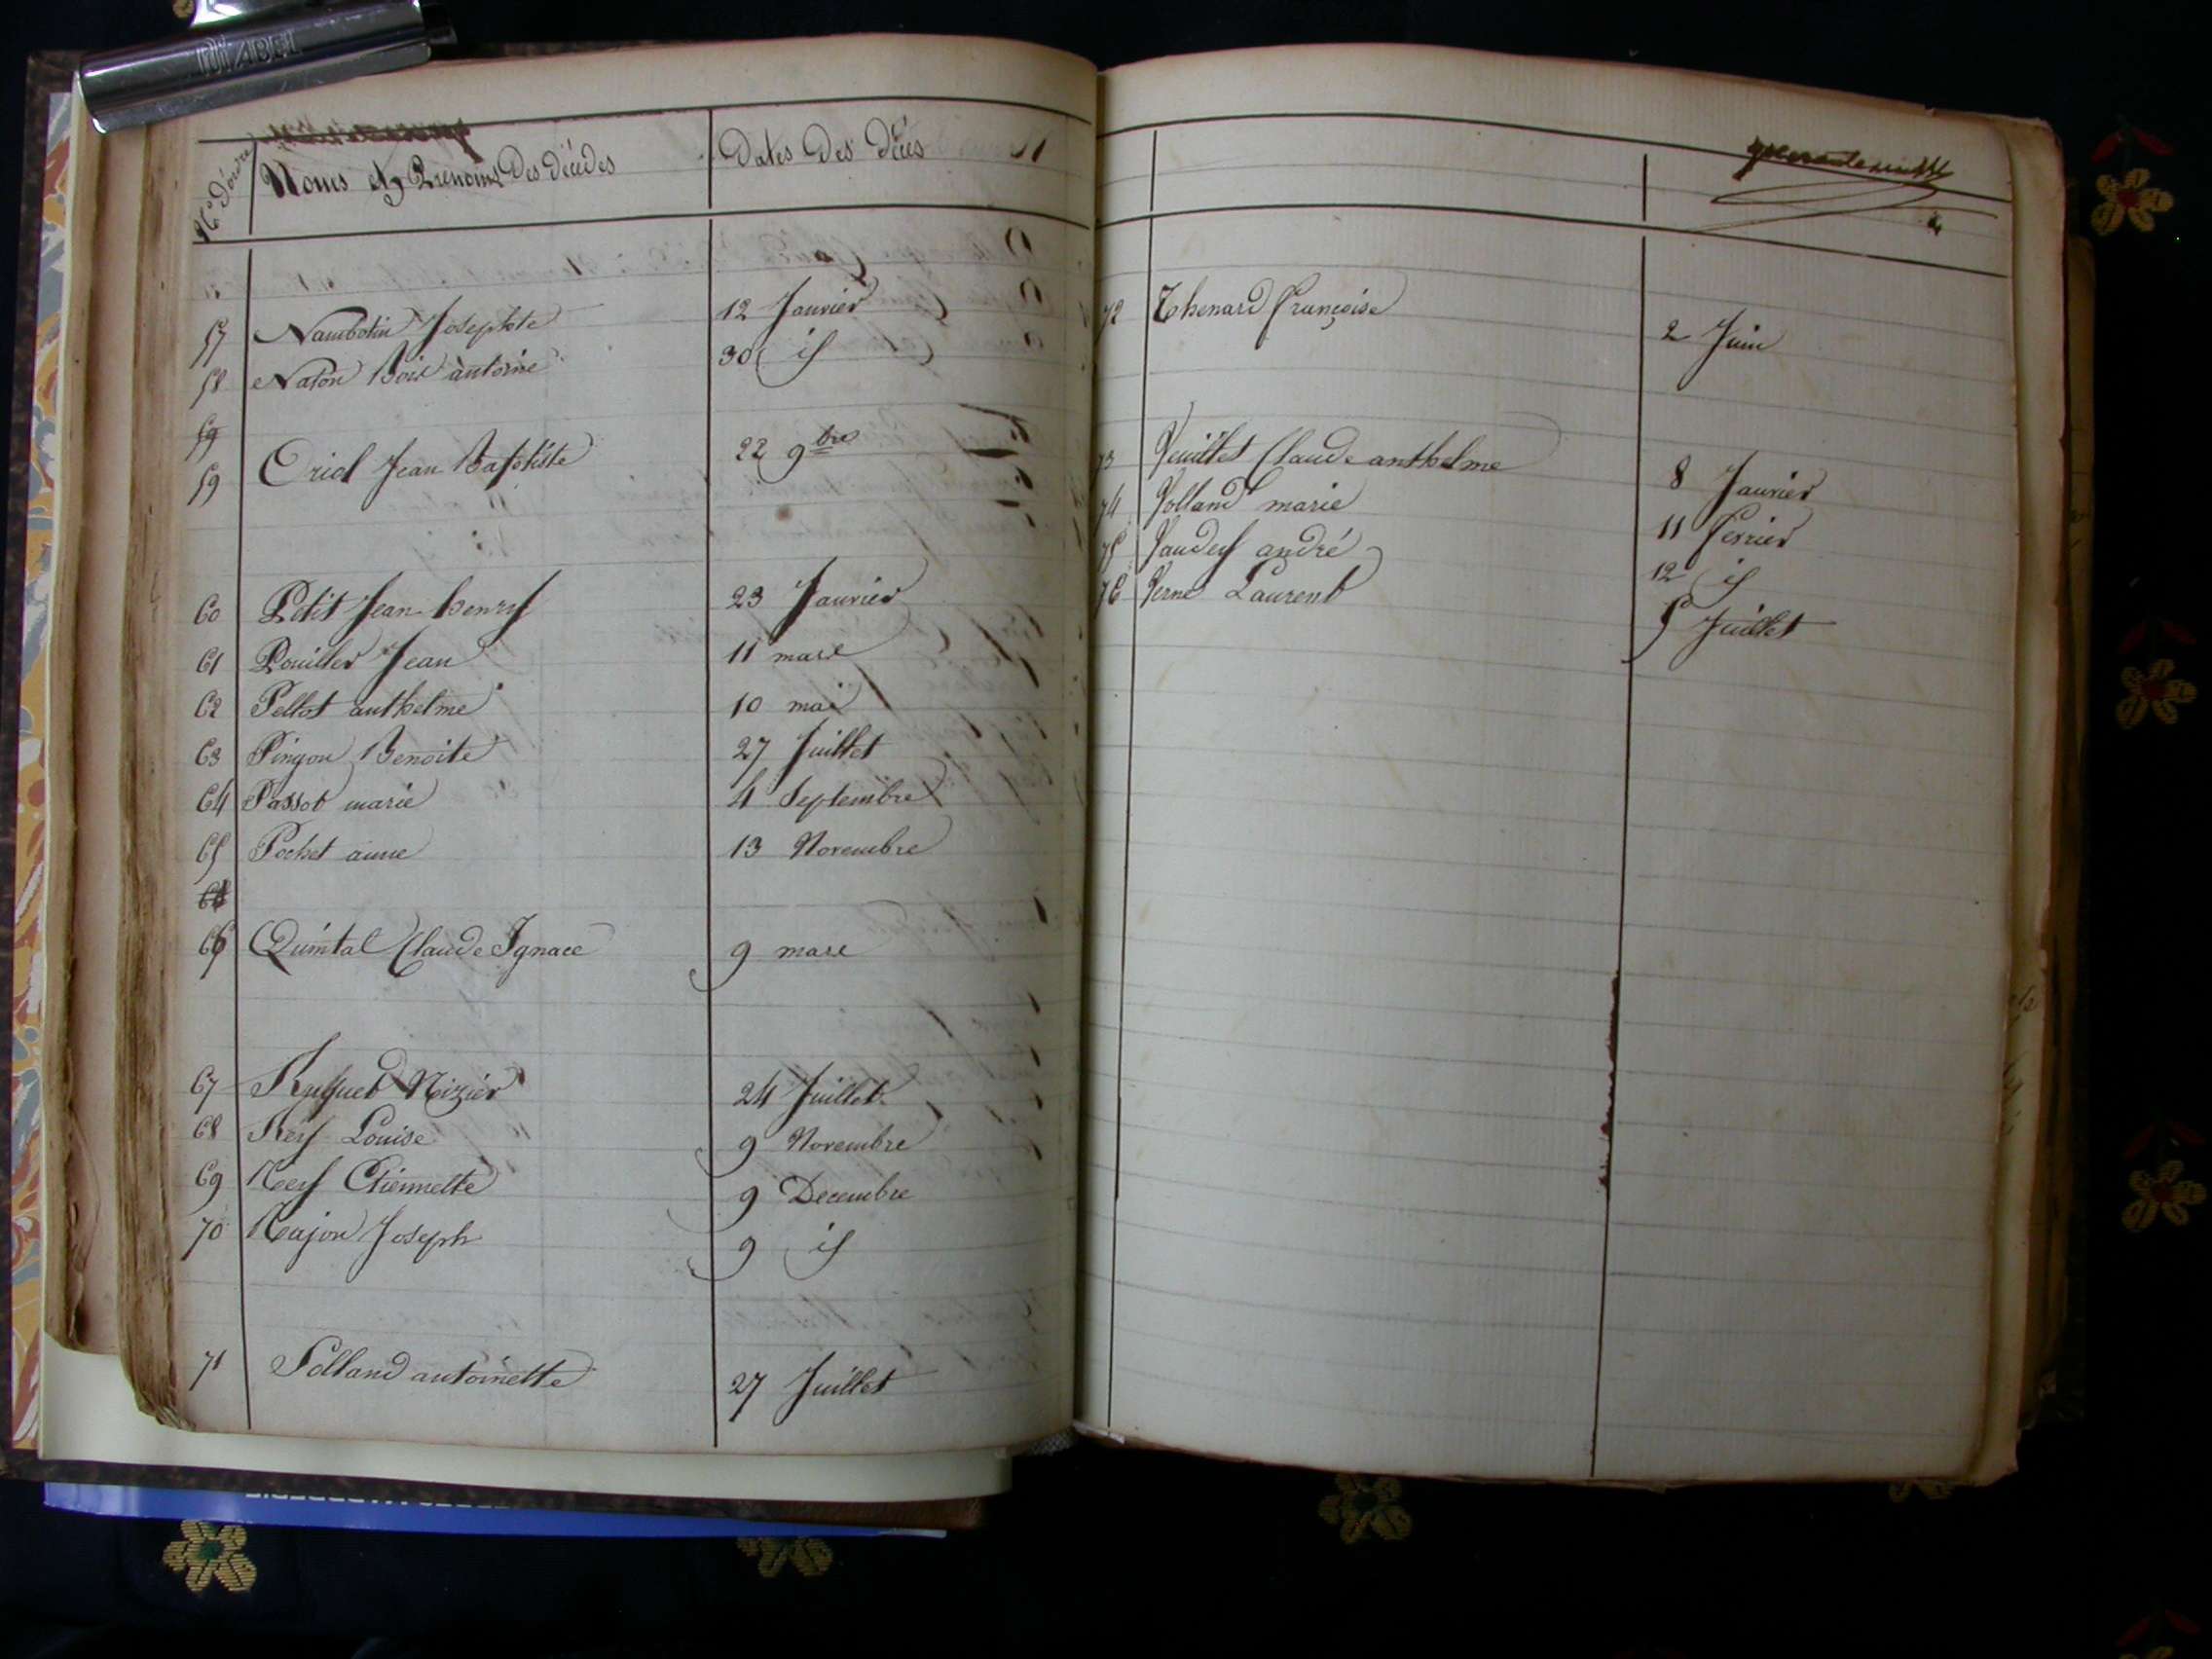 DIABEL
N.o d'ordre Noms et Prenoms Des décédés Dates Des Décès
57 Nambotin Josephte 12 Janvier
58 Naton Bois antoine 30 id
59
59 Oriol Jean Baptiste 22 9bre
60 Petit Jean henry 23 Janvier
61 Pouiller Jean 11 mars
62 Pellot anthelme 10 mai
63 Pingon Benoite 27 Juillet
64 Passot marie 4 Septembre
65 Pochet anne 13 Novembre
66 Quintal Claude Ignace 9 mars
67 Nizier 24 Juillet
68 Rey Louise 9 Novembre
69 Rey Etiennette 9 Decembre
70 Rajon Joseph 9 id
71 Solland antoinette 27 Juillet
72 Thenard Françoise 2 Juin
73 Veuillet Claude anthelme 8 Janvier
74 Volland marie 11 Fevrier
75 Vaudey andré 12 id
76 Verne Laurent 5 Juillet